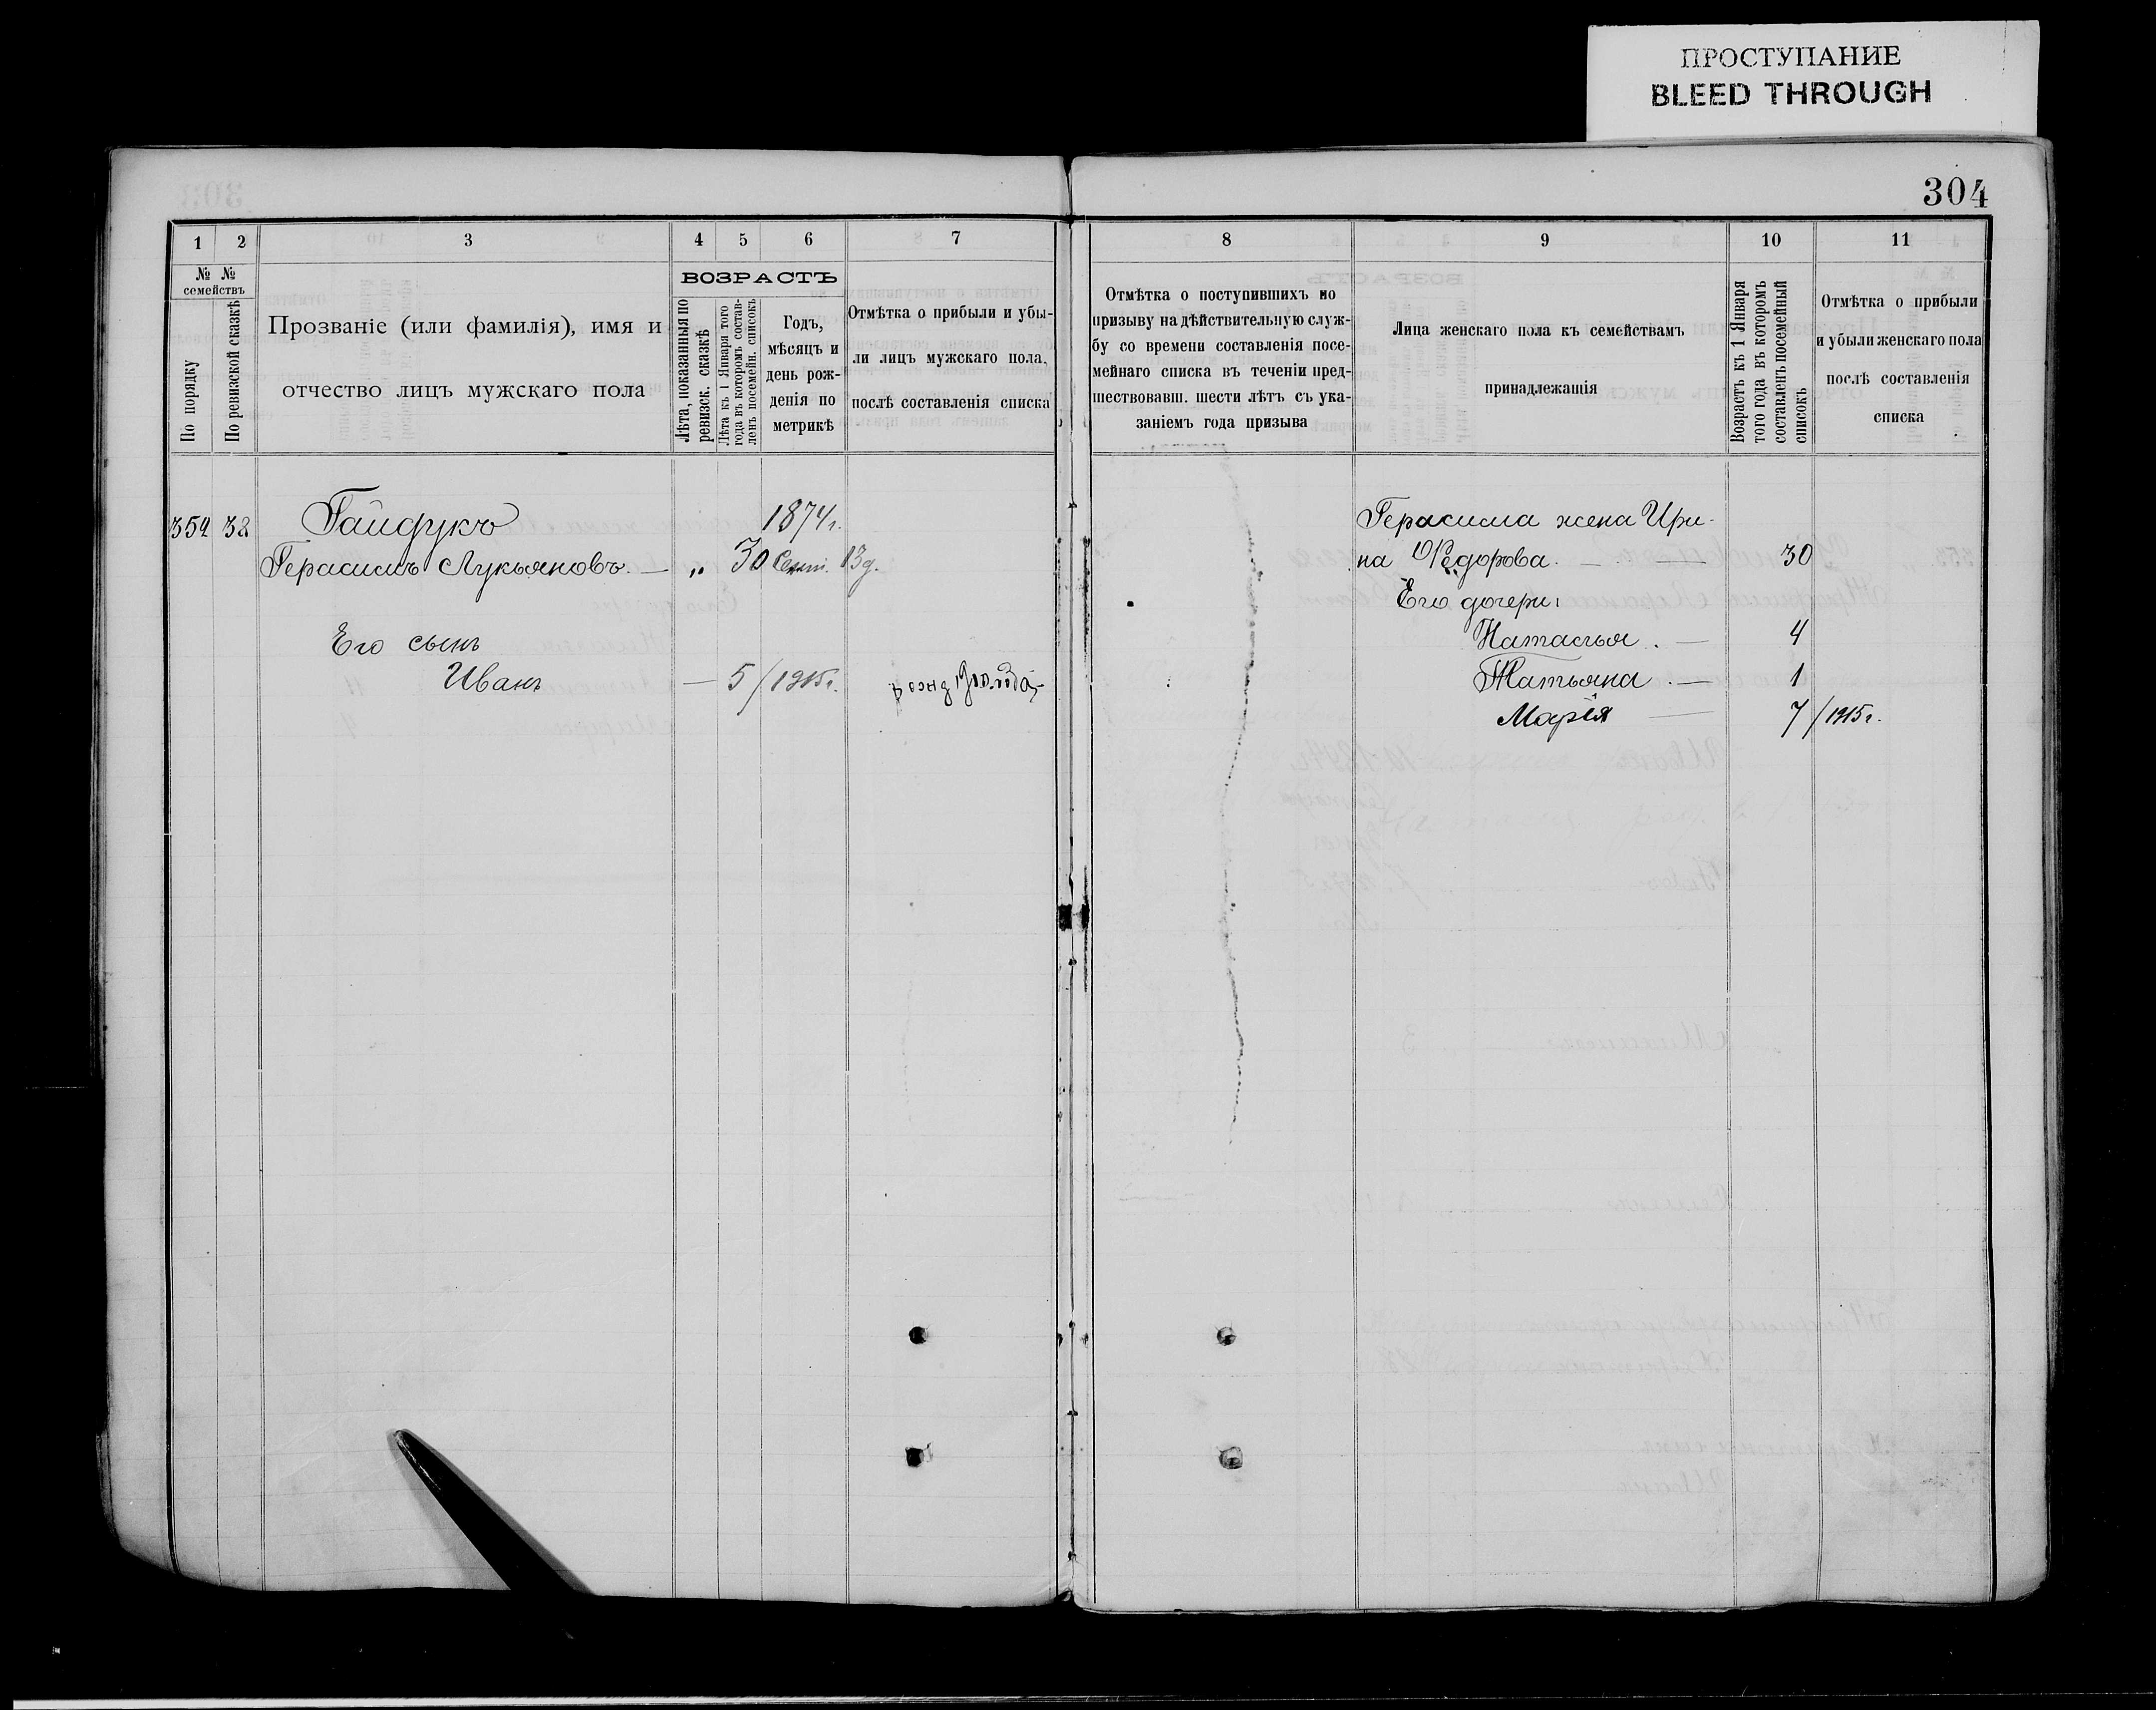 ПРОСТУПАНИЕ
BLEED THROUGH
304
1 2 3 4 5 6 7
№ № семействъ
По порядку
По ревизской сказкѣ
Прозваніе (или фамилія), имя и
отчество лицъ мужскаго пола
ВОЗРАСТЪ
Лѣта, показанныя по
ревизск. сказкѣ
Лѣта къ 1 Января того
года въ которомъ состав-
ленъ посемейн. списокъ
Годъ,
мѣсяцъ и
день рож-
денія по
метрикѣ
Отмѣтка о прибыли и убы-
ли лицъ мужскаго пола,
послѣ составленія списка
354 32 Гайдукъ 1874 г.
Герасимъ Лукьяновъ. — „ 30 Сент. 13 д.
Его сынъ
Иванъ — 5 / 1915 г.
8 9 10 11
Отмѣтка о поступившихъ по
призыву на дѣйствительную служ-
бу со времени составленія посе-
мейнаго списка въ теченіи пред-
шествовавш. шести лѣтъ съ ука-
заніемъ года призыва
Лица женскаго пола къ семействамъ
принадлежащія
Возрастъ къ 1 Января
того года въ которомъ
составленъ посемейный
списокъ
Отмѣтка о прибыли
и убыли женскаго пола
послѣ составленія
списка
Герасима жена Ири-
на Ѳедорова. — 30
Его дочери:
Наталья. — 4
Татьяна. — 1
Марія — 7 / 1915 г.